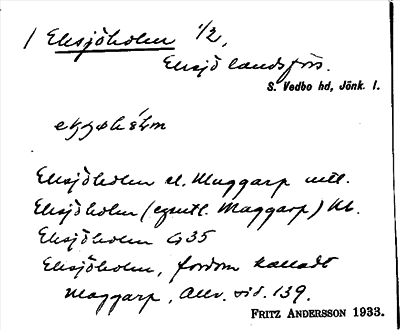 1 Eksjöholm 1/2,
Eksjö landsförs.
S. Vedbo hd, Jönk. l.
Eksjöholm el. Muggarp mtl.
Eksjöholm (egentl. Maggarp) Kb.
Eksjöholm G35
Eksjöholm, fordom kalladt
Maggarp, Allv. sid. 139.
FRITZ ANDERSSON 1933.